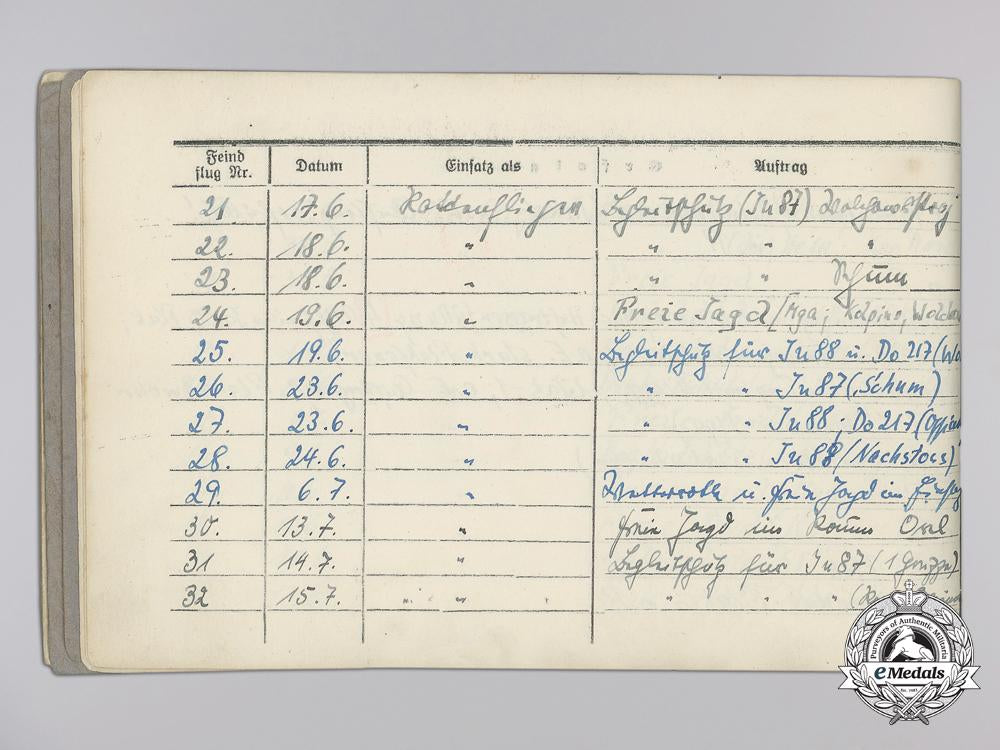 Feind flug Nr. Datum Einsatz als Auftrag
21 17.6. Rottenflieger Begleitschutz (Ju 87)
22. 18.6. " " " "
23. 18.6. " " "
24. 19.6. " Freie Jagd (Mga; Kolpino,
25. 19.6. " Begleitschutz für Ju 88 u. Do 217 (
26. 23.6. " " " Ju 87 (Schum)
27. 23.6. " " " Ju 88; Do 217 (
28. 24.6. " " " Ju 88 (Nachstoß)
29. 6.7. " u. freie Jagd im
30. 13.7. " freie Jagd im Raum Orel
31 14.7. " Begleitschutz für Ju 87 (1 Gruppe)
32 15.7. " " " "
Purveyors of Authentic Militaria
eMedals